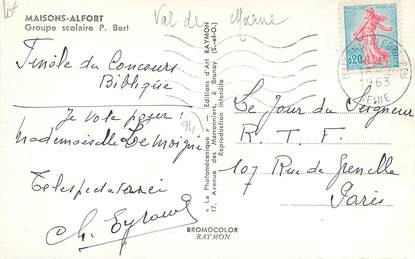 MAISONS-ALFORT
Groupe scolaire P. Bert
Val de Marne
Finale du Concours
Biblique
Je vote pour :
Mademoiselle Le Moigne
Telespectatrice
« La Photomécanique » — Editions d'Art RAYMON
17, Avenue des Marronniers, à Brunoy (S.-et-O.)
Reproduction interdite
BROMOCOLOR
RAYMON
0,20
1963
Le Jour du Seigneur
R. T. F.
107 Rue de Grenelle
Paris